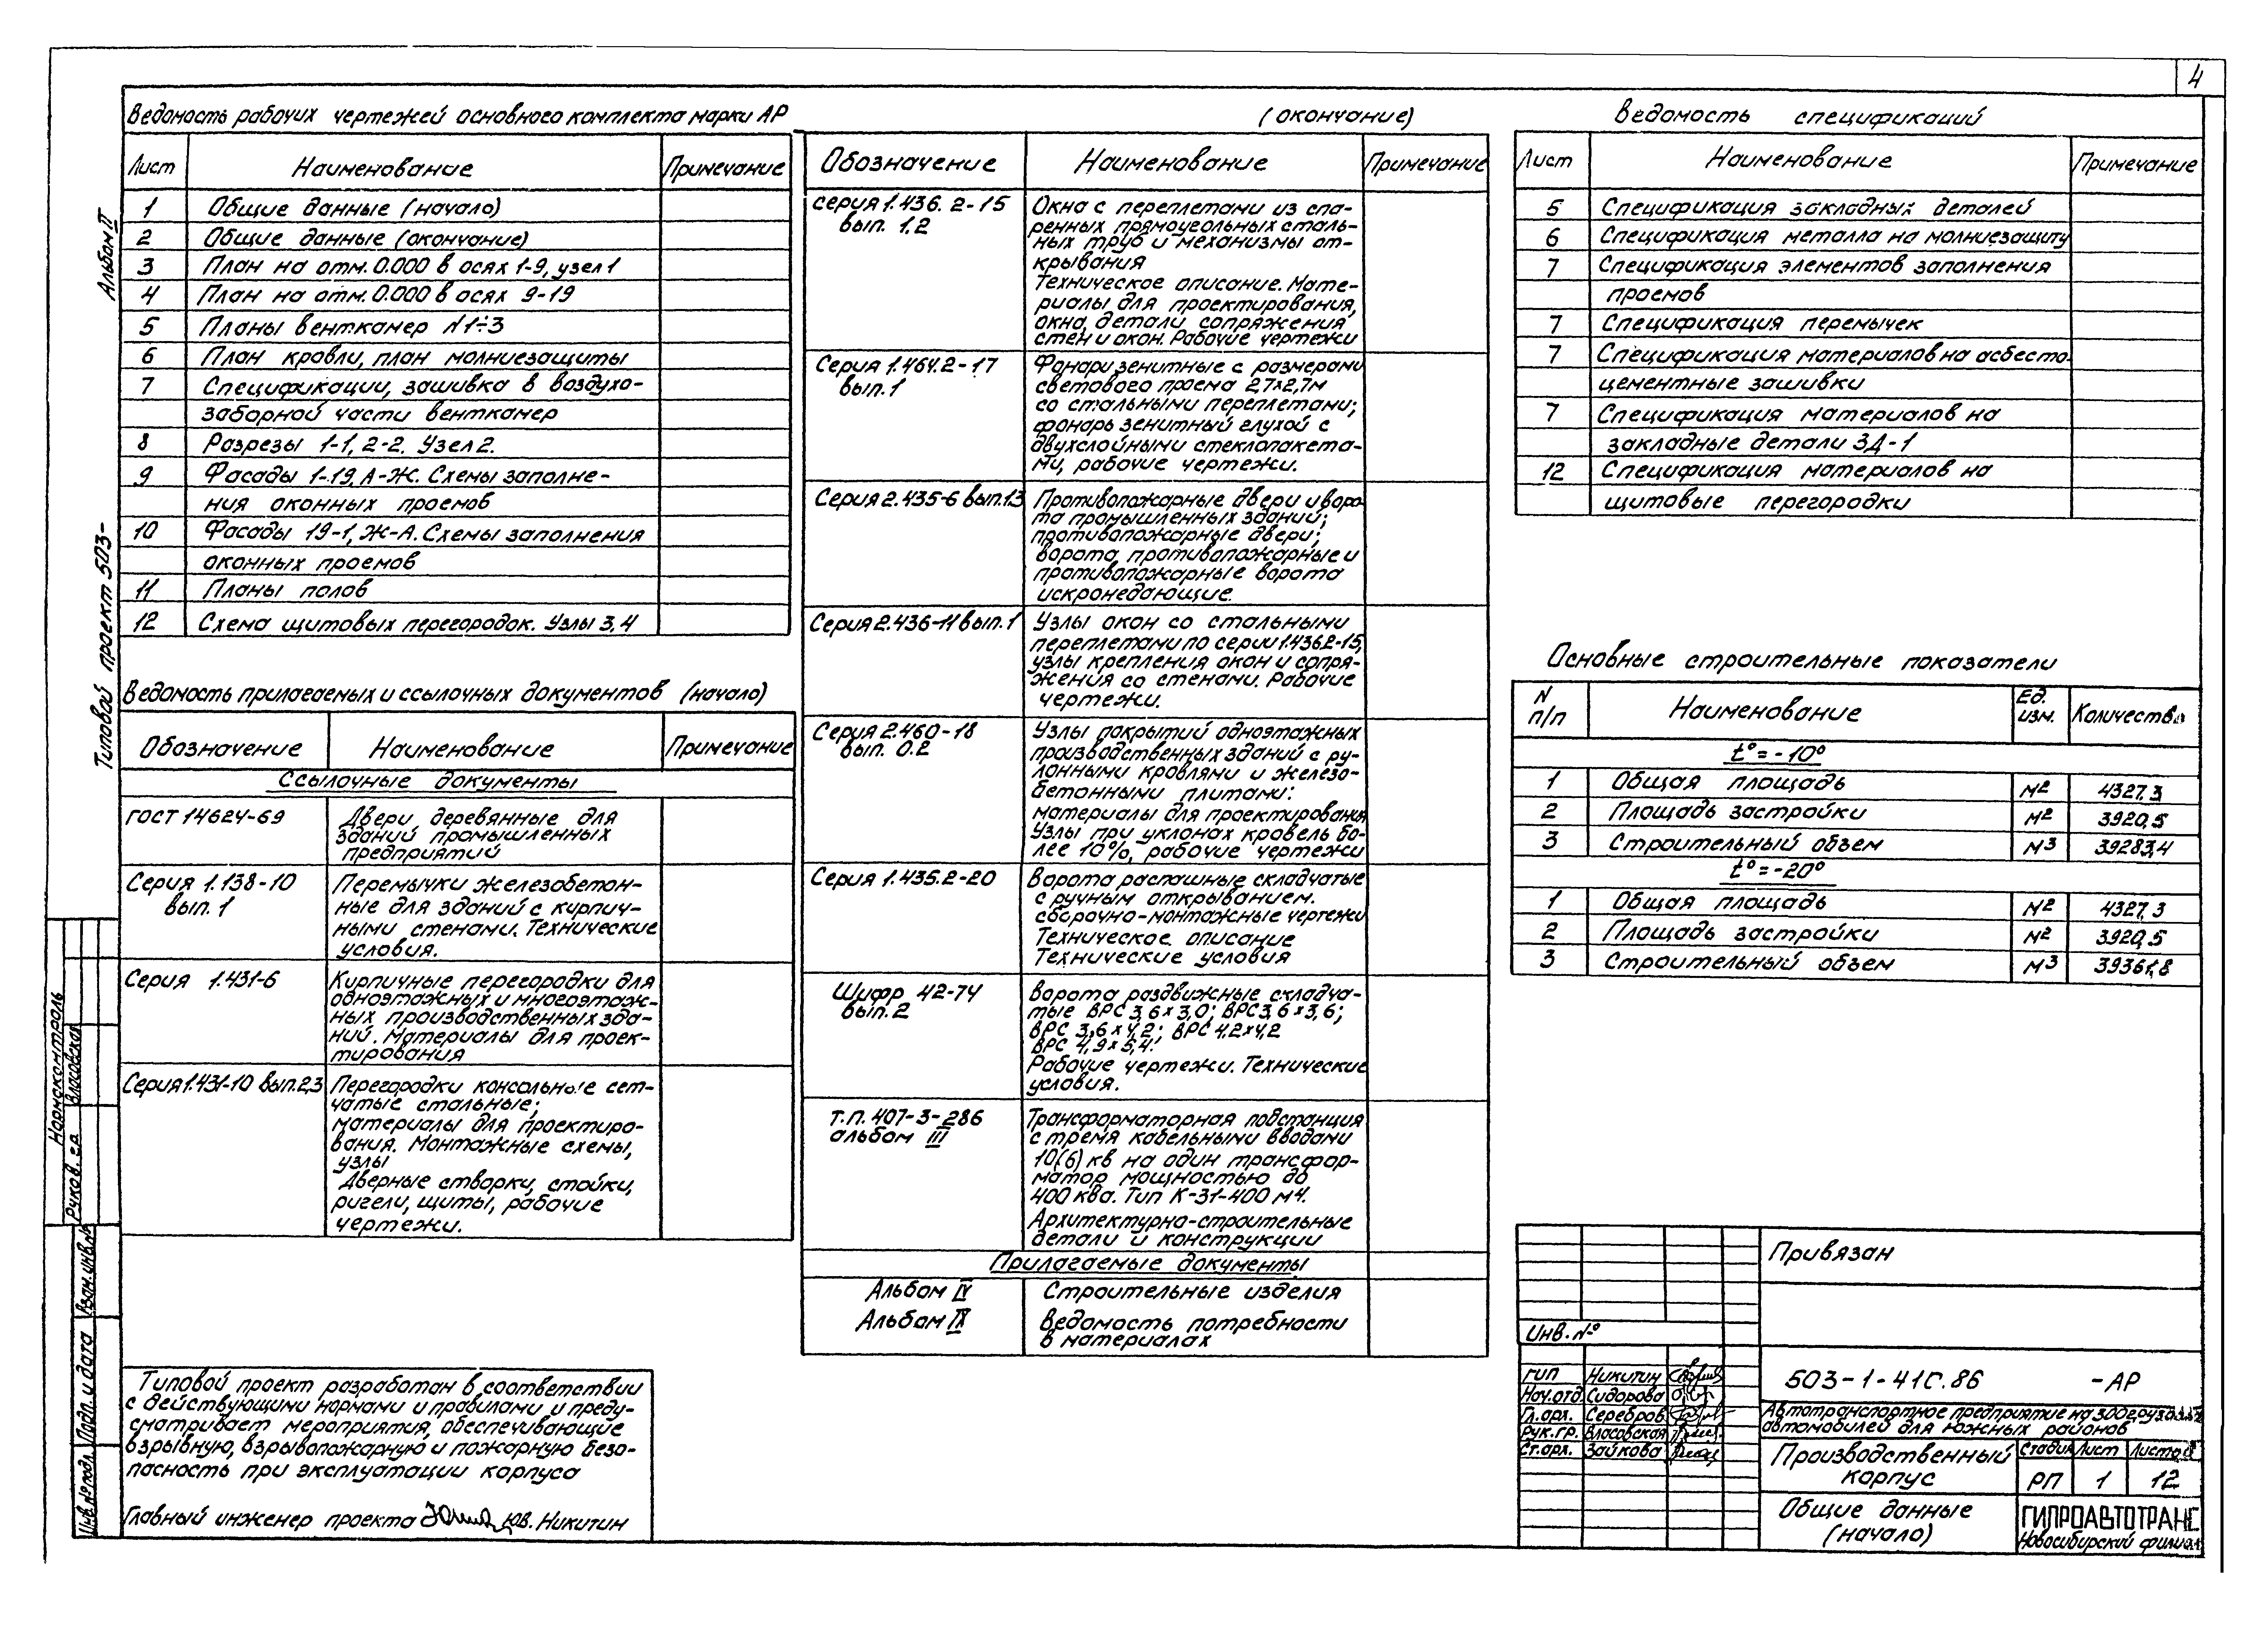 4
Ведомость рабочих чертежей основного комплекта марки АР
Лист Наименование Примечание
1 Общие данные (начало)
2 Общие данные (окончание)
3 План на отм. 0.000 в осях 1-9, узел 1
4 План на отм. 0.000 в осях 9-19
5 Планы венткамер N1÷3
6 План кровли, план молниезащиты
7 Спецификации, зашивка в воздухо-
заборной части венткамер
8 Разрезы 1-1, 2-2. Узел 2.
9 Фасады 1-19, А-Ж. Схемы заполне-
ния оконных проемов
10 Фасады 19-1, Ж-А. Схемы заполнения
оконных проемов
11 Планы полов
12 Схема щитовых перегородок. Узлы 3,4
Ведомость прилагаемых и ссылочных документов (начало)
Обозначение Наименование Примечание
Ссылочные документы
ГОСТ 14624-69 Двери деревянные для
зданий промышленных
предприятий
Серия 1.138-10 Перемычки железобетон-
вып. 1 ные для зданий с кирпич-
ными стенами. Технические
условия.
Серия 1.431-6 Кирпичные перегородки для
одноэтажных и многоэтаж-
ных производственных зда-
ний. Материалы для проек-
тирования
Серия 1.431-10 вып.2,3 Перегородки консольные сет-
чатые стальные;
материалы для проектиро-
вания. Монтажные схемы,
узлы
Дверные створки, стойки,
ригели, щиты, рабочие
чертежи.
Типовой проект разработан в соответствии
с действующими нормами и правилами и преду-
сматривает мероприятия, обеспечивающие
взрывную, взрывопожарную и пожарную безо-
пасность при эксплуатации корпуса
Главный инженер проекта Ю.В. Никитин
(окончание)
Обозначение Наименование Примечание
серия 1.436.2-15 Окна с переплетами из спа-
вып. 1.2 ренных прямоугольных сталь-
ных труб и механизмы от-
крывания
Техническое описание. Мате-
риалы для проектирования,
окна, детали сопряжения
стен и окон. Рабочие чертежи
Серия 1.464.2-17 Фонари зенитные с размерами
вып. 1 светового проема 2,7х2,7м
со стальными переплетами;
фонарь зенитный глухой с
двухслойными стеклопакета-
ми, рабочие чертежи.
Серия 2.435-6 вып.1.3 Противопожарные двери и воро-
та промышленных зданий;
противопожарные двери;
ворота противопожарные и
противопожарные ворота
искронедающие.
Серия 2.436-11 вып.1 Узлы окон со стальными
переплетами по серии 1.436.2-15,
узлы крепления окон и сопря-
жения со стенами. Рабочие
чертежи.
Серия 2.460-18 Узлы покрытий одноэтажных
вып. 0.2 производственных зданий с ру-
лонными кровлями и железо-
бетонными плитами:
материалы для проектирования
Узлы при уклонах кровель бо-
лее 10%, рабочие чертежи
Серия 1.435.2-20 Ворота распашные складчатые
с ручным открыванием.
сборочно-монтажные чертежи
Техническое описание
Технические условия
Шифр 42-74 Ворота раздвижные складча-
вып. 2 тые ВРС 3,6×3,0; ВРС 3,6×3,6;
ВРС 3,6×4,2; ВРС 4.2×4,2
ВРС 4,9×5,4.
Рабочие чертежи. Технические
условия.
Т.П. 407-3-286 Трансформаторная подстанция
альбом III с тремя кабельными вводами
10(6) кв на один трансфор-
матор мощностью до
400 ква. Тип К-31-400 м4.
Архитектурно-строительные
детали и конструкции
Прилагаемые документы
Альбом IV Строительные изделия
Альбом IX Ведомость потребности
в материалах
Ведомость спецификаций
Лист Наименование Примечание
5 Спецификация закладных деталей
6 Спецификация металла на молниезащиту
7 Спецификация элементов заполнения
проемов
7 Спецификация перемычек
7 Спецификация материалов на асбесто-
цементные зашивки
7 Спецификация материалов на
закладные детали ЗД-1
12 Спецификация материалов на
щитовые перегородки
Основные строительные показатели
N п/п Наименование Ед. изм. Количество
t° = -10°
1 Общая площадь м2 4327,3
2 Площадь застройки м2 3920,5
3 Строительный объем м3 39283,4
t° = -20°
1 Общая площадь м2 4327,3
2 Площадь застройки м2 3920,5
3 Строительный объем м3 39361,8
Привязан
Инв. №
ГИП Никитин
Нач.отд. Сидорова
Гл.арх. Серебров
Рук.гр. Власовская
Ст.арх. Зайкова
503-1-41С.86 -АР
Автотранспортное предприятие на 300 грузовых
автомобилей для южных районов
Производственный
корпус
Стадия Лист Листов
РП 1 12
Общие данные
(начало)
ГИПРОАВТОТРАНС
Новосибирский филиал
Альбом II
Типовой проект 503-
Нормоконтроль
Руков. гр. Власовская
Взам. инв. №
Подп. и дата
Инв. № подл.